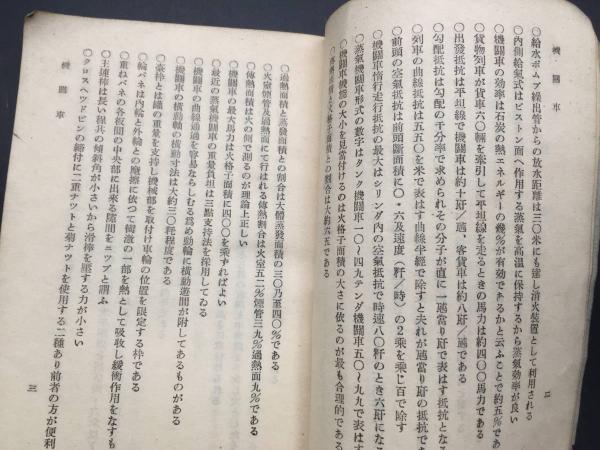 機關車
二
〇給水ポムプ繰出管からの放水距離は三〇米にも達し消火裝置として利用される
〇內側給氣式はピストン面へ作用する蒸氣を高温に保持するから蒸氣効率が良い
〇機關車の効率は石炭の熱エネルギーの幾%が有効であるかと云ふことで約五%であ
〇貨物列車が貨車六〇輛を牽引して平坦線を走るときの馬力は約四〇〇馬力である
〇出發抵抗は平坦線で機關車は約十瓩/瓲、客貨車は約八瓩/瓲である
〇勾配抵抗は勾配の千分率で求められその分子が直に一瓲當り瓩で表はす抵抗となる
〇列車の曲線抵抗は五五〇を米で表はす曲線半徑で除すと夫れが瓲當り瓩の抵抗であ
〇前頭の空氣抵抗は前頭斷面積に〇・六及速度(粁/時)の2乘を乘じ百で除す
〇機關車惰行走行抵抗の最大はシリンダ內の空氣抵抗で時速八〇粁のとき六瓩にな
〇蒸氣機關車形式の數字はタンク機關車一〇〜四九テンダ機關車五〇〜九九で表はす
〇機關車機能の大小を見當付けるのは火格子面積の大さに依るのが最も合理的である
火格子面積との割合は大約六五である
〇過熱面積と蒸發面積との割合は大體蒸發面積の三〇乃至四〇%である
〇火室煙管及過熱面にて行はれる傳熱割合は火室五二%煙管三九%過熱面九%である
〇傳熱面積は火の側で測るのが理論上正しい
〇機關車の最大馬力は火格子面積に四〇〇を乘ずればよい
〇最近の蒸氣機關車の重量負坦は三點支持法を採用してゐる
〇機關車の曲線通過を容易ならしむる爲め動輪に橫動遊間が附してあるものがある
〇機關車の橫動軸の橫動寸法は大約三〇粍程度である
〇臺枠とは罐の重量を支持し機械部を取付け車輪の位置を限定する枠である
〇輪バネは內輪と外輪との磨擦に依つて衝激の一部を熱として吸收し緩衝作用をなすも
〇重ねバネの各板間の中央部に出來る隙間をニツプと謂ふ
〇主連棒は長い程其の傾斜角が小さいから滑棒を壓する力が小さい
〇クロスヘツドピンの締付に二重ナツトと菊ナツトを使用する二種あり前者の方が便利
機關車
三